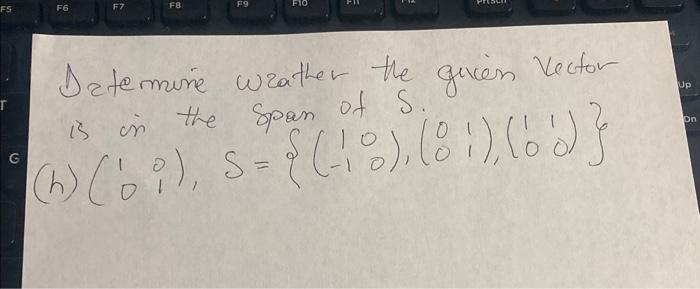 F5 F6 F7 F8 F9 F10 F11 PrtScn
Up
Dn
T
G
Determine weather the given Vector
is in the span of S.
(h) (1 0 0 1), S = {(1 0 -1 0), (0 1 0 1), (1 1 0 0)}